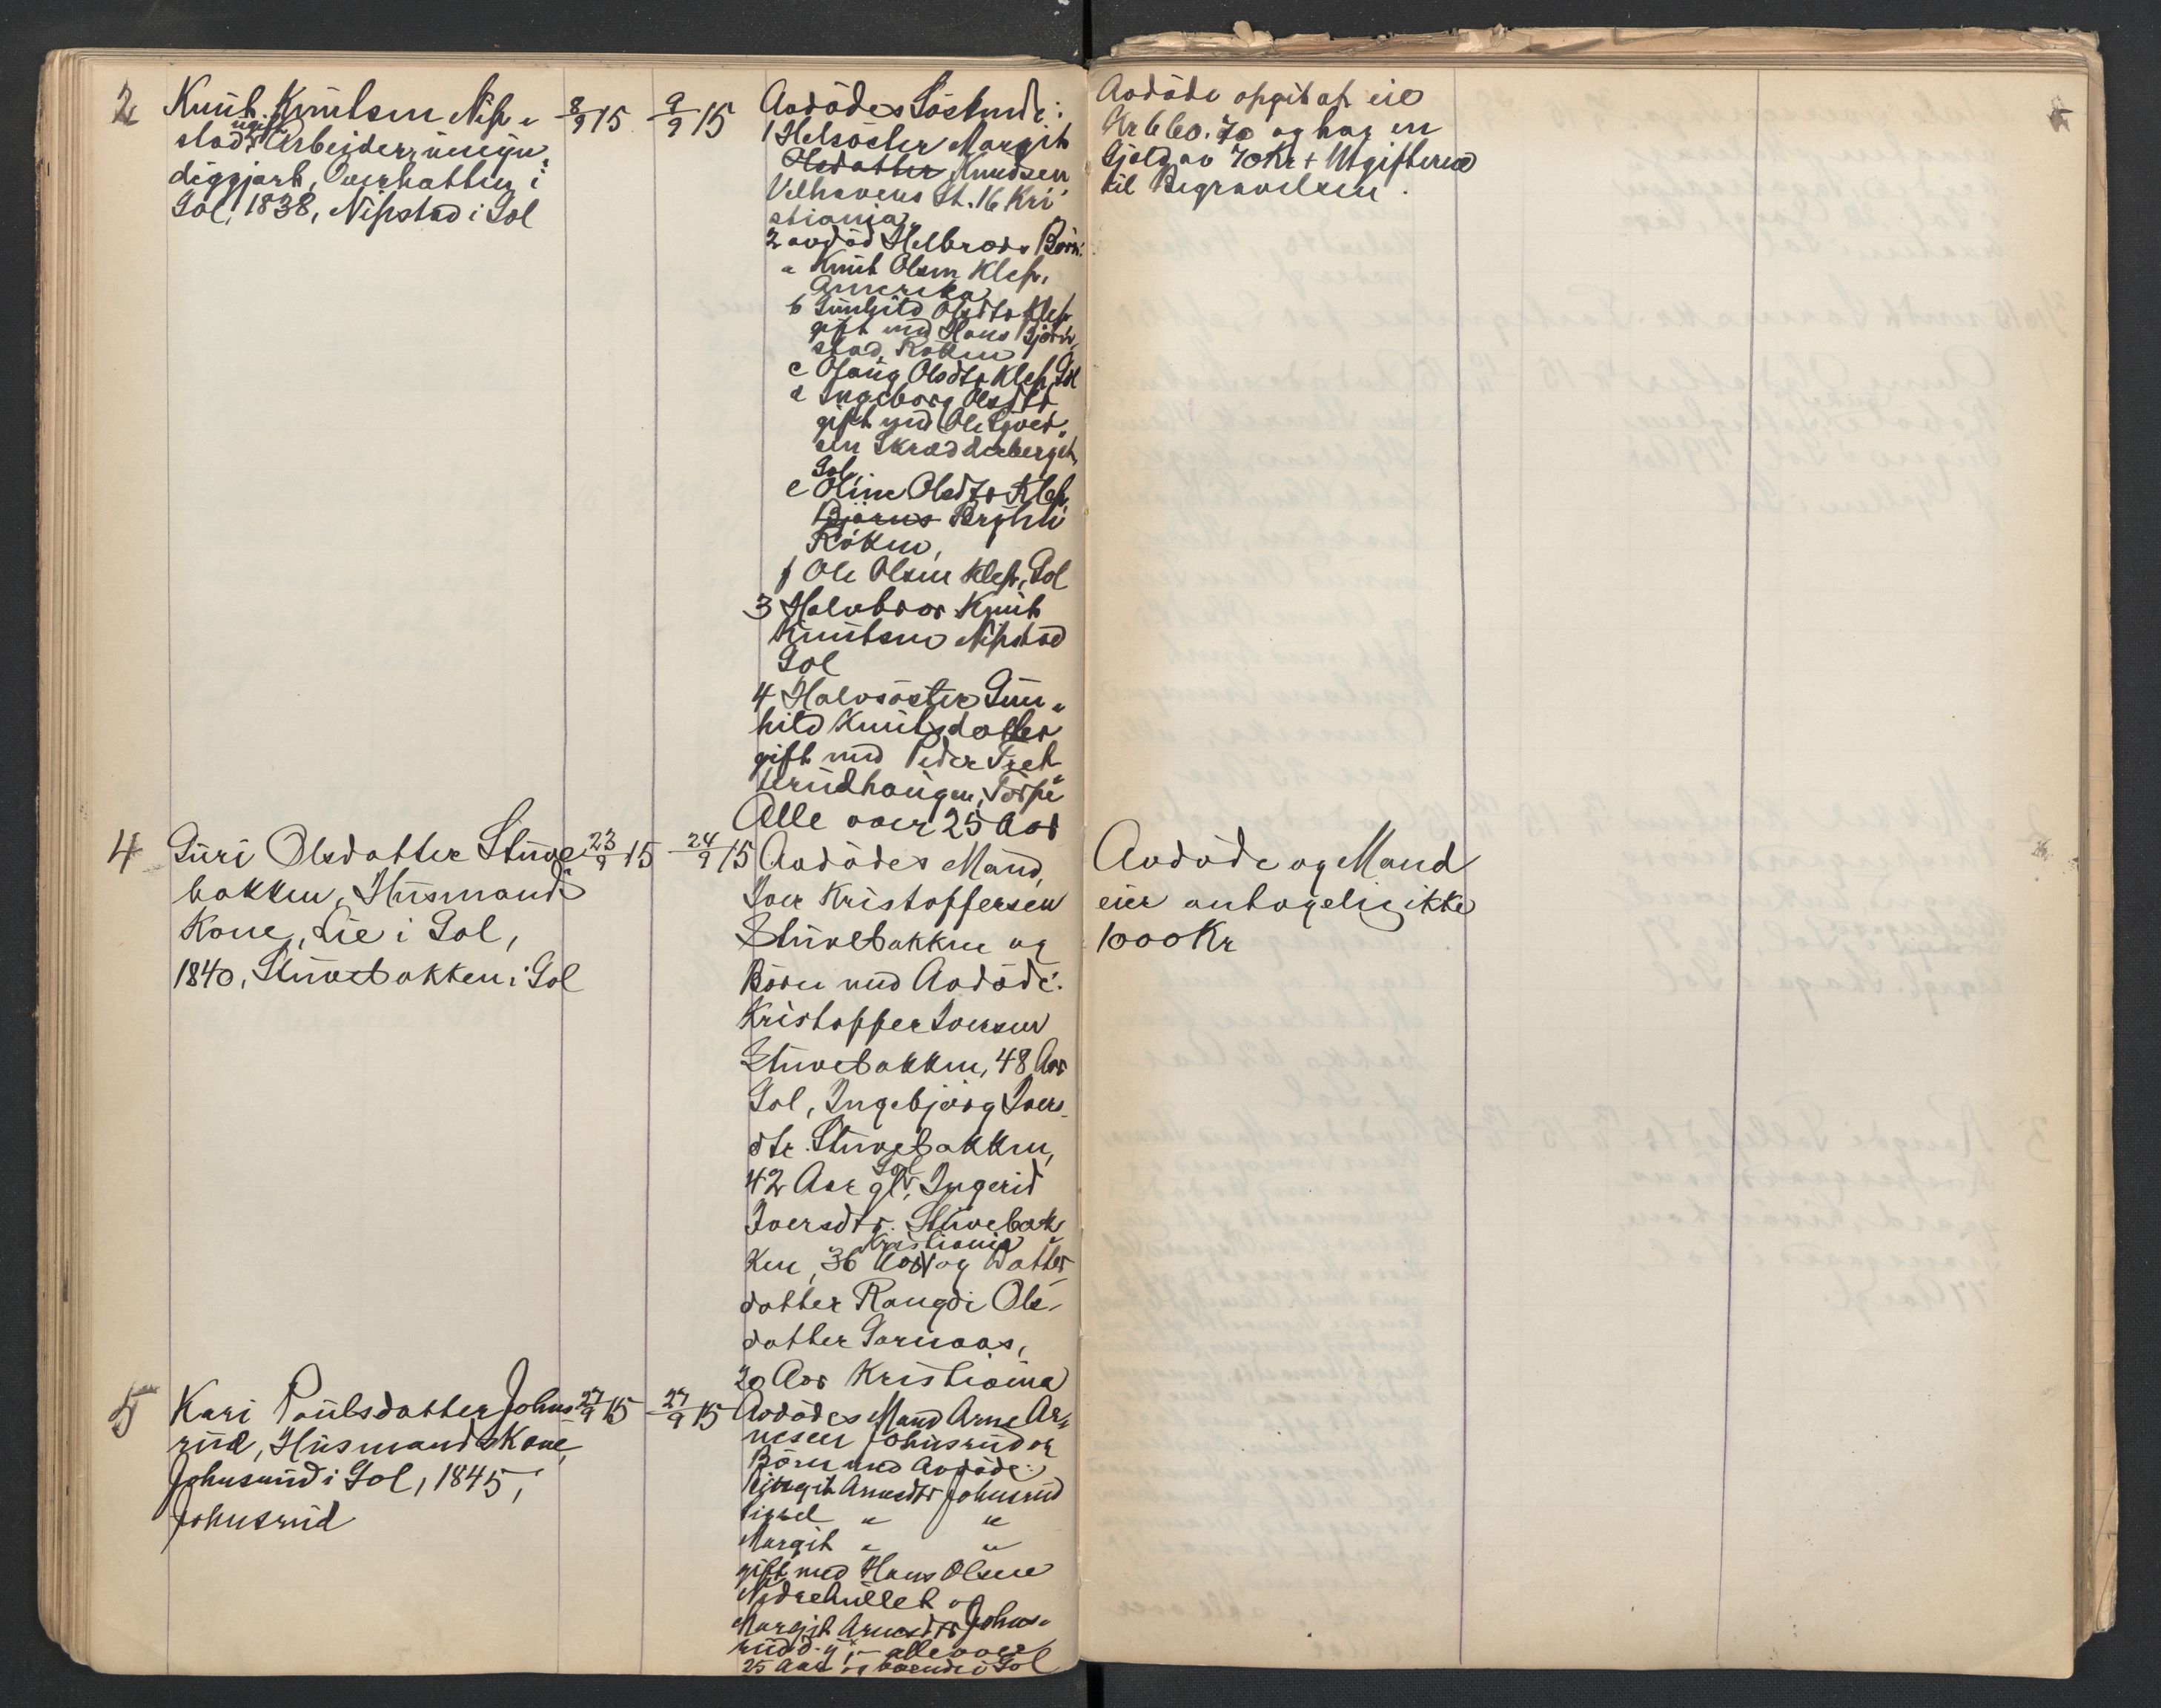 2
Knut Knutsen Nip-
stad, ugift Arbeider, umyn-
diggjort, Överhatten i
Gol, 1838, Nipstad i Gol
8/9 15
9/9 15
Avdödes Söskende:
1 Helsöster Margit
Olsdatter Knudsen
Velhavens Gt. 16 Kri-
stiania,
2 avdöd Helbrors Börn:
a Knut Olsen Klep,
Amerika
b Gunhild Olsdtr Klep
gift med Hans Björn-
stad, Röken
c Olaug Olsdtr Klep, Gol
d Ingeborg Olsdtr
gift med Ole
sen Skrædderberget,
Gol,
e Oline Olsdtr Klep,
Björns
Röken,
f Ole Olsen Klep, Gol
3 Halvbror Knut
Knutsen Nipstad
Gol
4 Halvsöster Gun-
hild Knutsdatter
gift med Peder Tret-
terudhaugen, Torpe
Alle over 25 Aar
Avdöde opgit at eie
Kr 660.70 og har en
Gjeld av 70 Kr + Utgifterne
til Begravelsen.
4
Guri Olsdatter Stuve-
bakken, Husmands
Kone, Lie i Gol,
1840, Stuvebakken i Gol
23/9 15
24/9 15
Avdödes Mand,
Iver Kristoffersen
Stuvebakken og
Börn med Avdöde:
Kristoffer Iversen
Stuvebakken, 48 Aar
Gol, Ingebjörg Ivers-
dtr. Stuvebakken,
42 Aar gl, Gol, Ingerid
Iversdtr. Stuvebak-
ken, 36 Aar, Kristiania og Datter
datter Rangdi Ols-
datter Garnaas,
20 Aar Kristiania
Avdöde og Mand
eier antagelig ikke
1000 Kr
5
Kari Paulsdatter Johns-
rud, Husmandskone,
Johnsrud i Gol, 1845,
Johnsrud
27/9 15
27/9 15
Avdödes Mand Arne Ar-
nesen Johnsrud og
Börn med Avdöde:
Birgit Arnesdtr Johnsrud
Sissel " "
Margit " "
gift med Hans Olsen
Nedrehullet og
Margit Arnesdtr Johns-
rud d. y, - alle over
25 Aar og boende i Gol